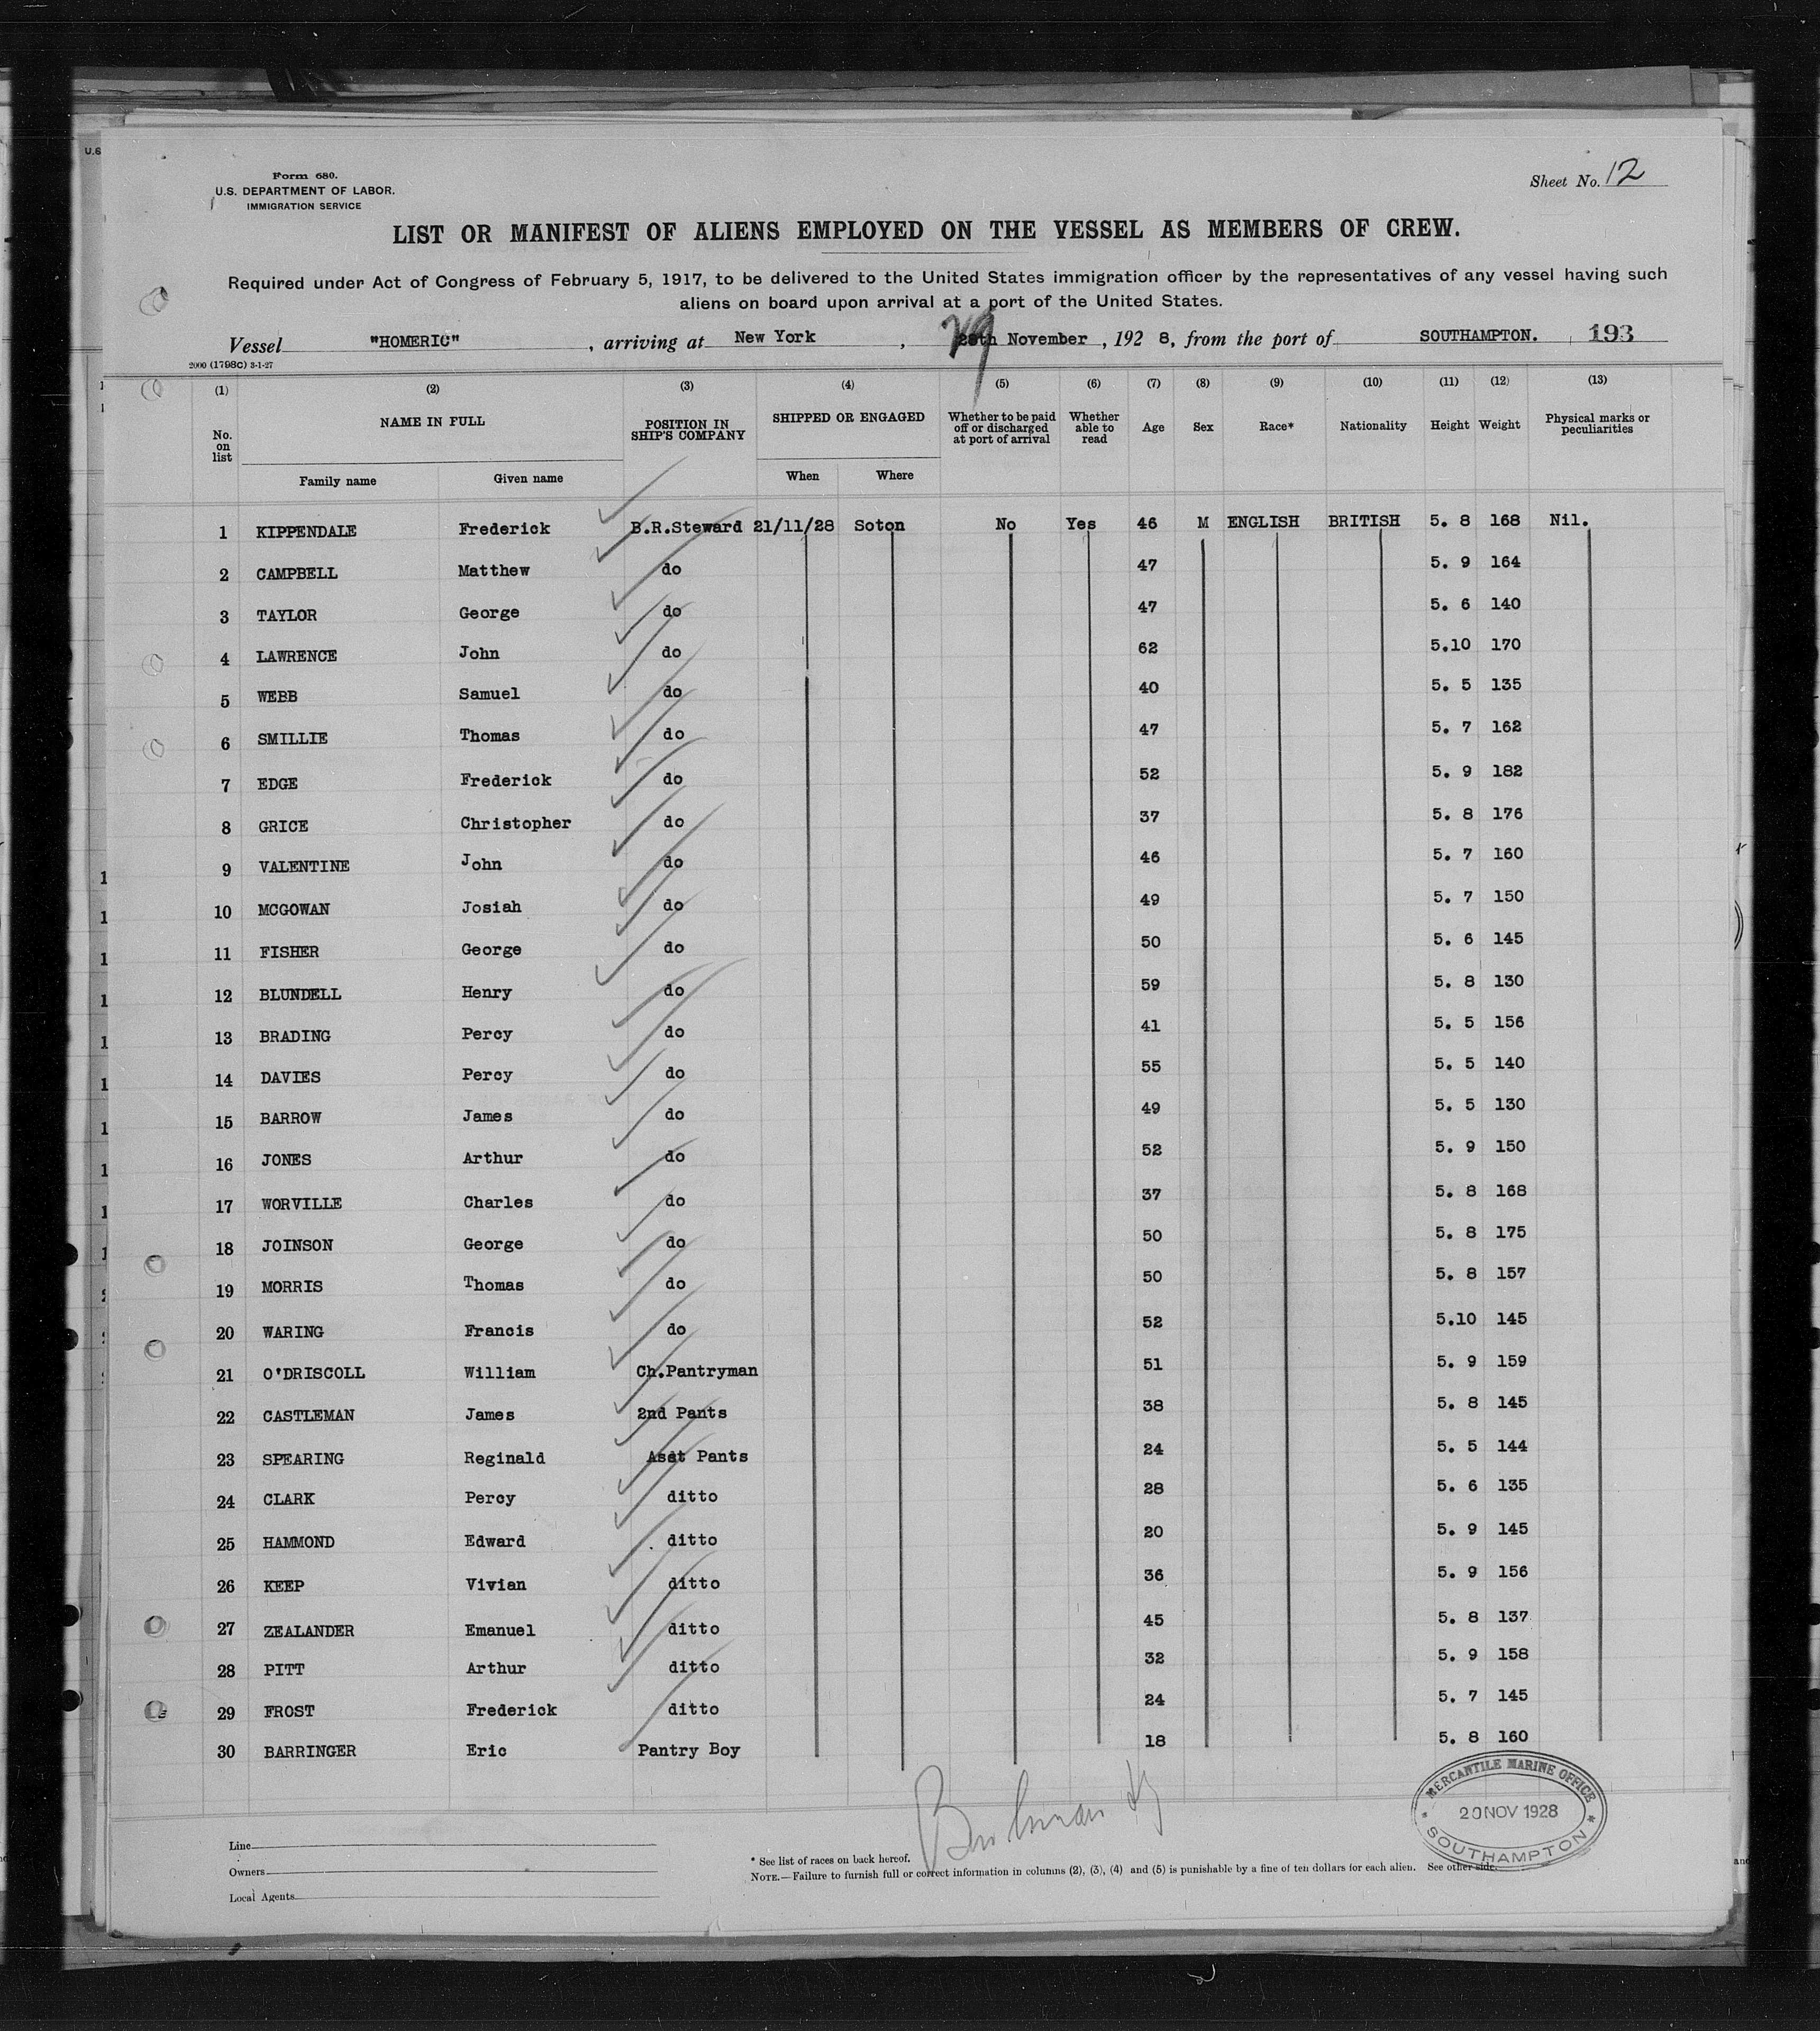 Form 680.
U.S. DEPARTMENT OF LABOR.
IMMIGRATION SERVICE
Sheet No. 12
LIST OR MANIFEST OF ALIENS EMPLOYED ON THE VESSEL AS MEMBERS OF CREW.
Required under Act of Congress of February 5, 1917, to be delivered to the United States immigration officer by the representatives of any vessel having such
aliens on board upon arrival at a port of the United States.
Vessel "HOMERIC", arriving at New York, 29 November, 1928, from the port of SOUTHAMPTON. 193
2000 (1798C) 3-1-27
(1) (2) (3) (4) (5) (6) (7) (8) (9) (10) (11) (12) (13)
No. on list NAME IN FULL POSITION IN SHIP'S COMPANY SHIPPED OR ENGAGED Whether to be paid off or discharged at port of arrival Whether able to read Age Sex Race* Nationality Height Weight Physical marks or peculiarities
Family name Given name When Where
1 KIPPENDALE Frederick B.R.Steward 21/11/28 Soton No Yes 46 M ENGLISH BRITISH 5. 8 168 Nil.
2 CAMPBELL Matthew do 47 5. 9 164
3 TAYLOR George do 47 5. 6 140
4 LAWRENCE John do 62 5.10 170
5 WEBB Samuel do 40 5. 5 135
6 SMILLIE Thomas do 47 5. 7 162
7 EDGE Frederick do 52 5. 9 182
8 GRICE Christopher do 37 5. 8 176
9 VALENTINE John do 46 5. 7 160
10 MCGOWAN Josiah do 49 5. 7 150
11 FISHER George do 50 5. 6 145
12 BLUNDELL Henry do 59 5. 8 130
13 BRADING Percy do 41 5. 5 156
14 DAVIES Percy do 55 5. 5 140
15 BARROW James do 49 5. 5 130
16 JONES Arthur do 52 5. 9 150
17 WORVILLE Charles do 37 5. 8 168
18 JOINSON George do 50 5. 8 175
19 MORRIS Thomas do 50 5. 8 157
20 WARING Francis do 52 5.10 145
21 O'DRISCOLL William Ch.Pantryman 51 5. 9 159
22 CASTLEMAN James 2nd Pants 38 5. 8 145
23 SPEARING Reginald Asst Pants 24 5. 5 144
24 CLARK Percy ditto 28 5. 6 135
25 HAMMOND Edward ditto 20 5. 9 145
26 KEEP Vivian ditto 36 5. 9 156
27 ZEALANDER Emanuel ditto 45 5. 8 137
28 PITT Arthur ditto 32 5. 9 158
29 FROST Frederick ditto 24 5. 7 145
30 BARRINGER Eric Pantry Boy 18 5. 8 160
MERCANTILE MARINE OFFICE
20 NOV 1928
SOUTHAMPTON
Line
Owners
Local Agents
* See list of races on back hereof.
NOTE.—Failure to furnish full or correct information in columns (2), (3), (4) and (5) is punishable by a fine of ten dollars for each alien. See other side.